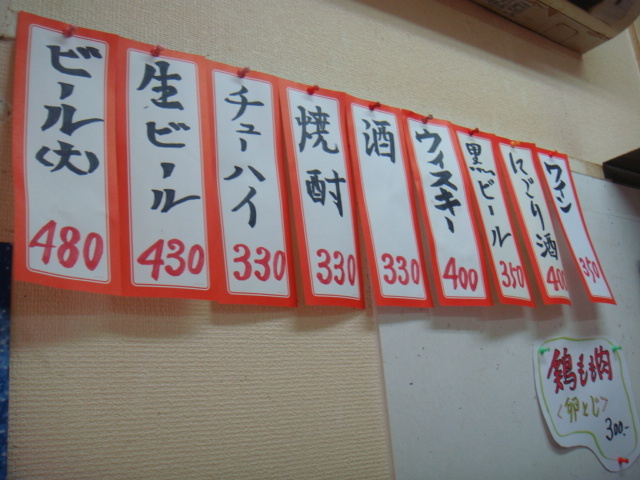 ビール(大)
480
生ビール
430
チューハイ
330
焼酎
330
酒
330
ウィスキー
400
黒ビール
350
にごり酒
400
ワイン
350
鶏もも肉
<卵とじ>
300-